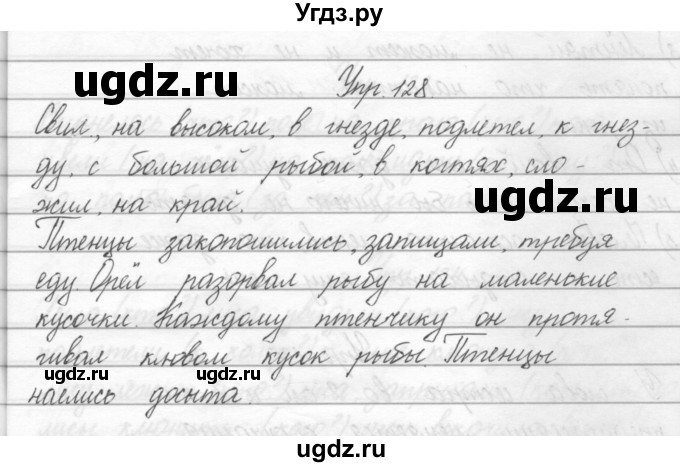 Угдз.ру
ugdz.ru
ugdz.ru
Упр. 128
Свил, на высоком, в гнезде, подлетел, к гнез-
ду, с большой рыбой, в когтях, сло-
жил, на край.
ugdz.ru
Птенцы закопошились, запищали, требуя
еду. Орёл разорвал рыбу на маленькие
кусочки. Каждому птенчику он протя-
гивал клювом кусок рыбы. Птенцы
ugdz.ru
ugdz.ru
наелись досыта.
ugdz.ru